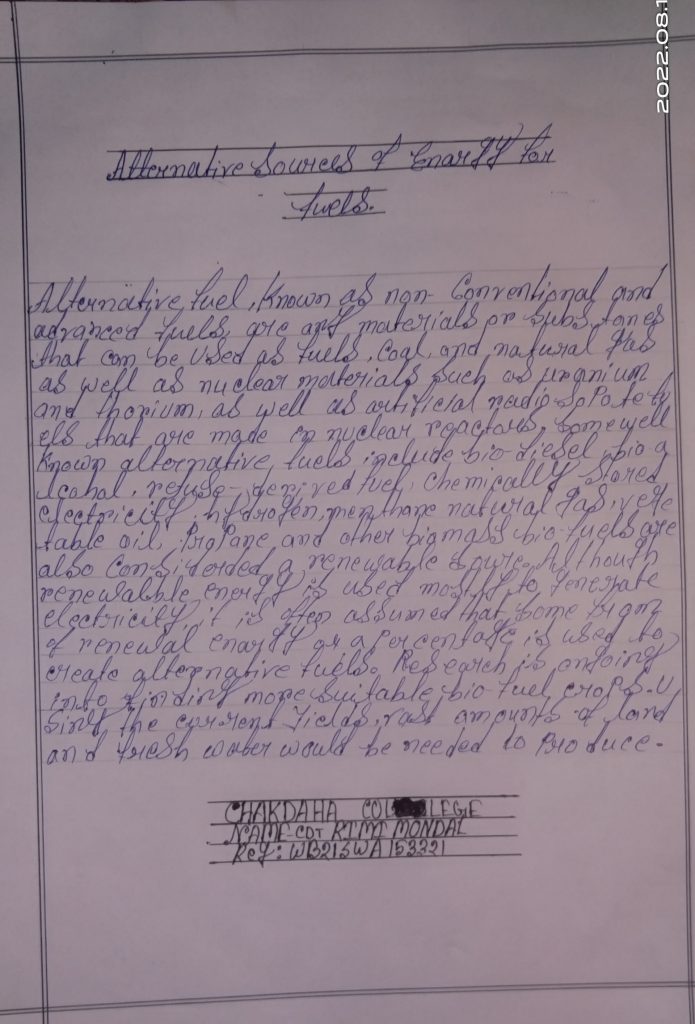 2022.08.1
Alternative Sources of Enargy for
fuels.
Alternative fuel, Known as non-Conventional and
advanced fuels, are any materials or Subs tones
that can be Used as fuels, Coal, and natural gas
as well as nuclear materials such as uranium
and thorium, as well as artificial radio
els that are made in nuclear reactors. Somewell
Known alternative, fuels include bio-diesel, bio-a
lcohal, refuse-derived fuel, chemically stored
electricity, hydrogen, menthane natural gas, vege
table oil, Propane and other biomass bio-fuels are
also Considerded a renewable Soure. Although
renewalble energy is used mostly to generate
electricity, it is often assumed that some
of renewal enargy or a percentage is used to
create alternative fuels. Research is ongoing
into finding more suitable, bio fuel crops. U
sing the current yields, vast amounts of land
and fresh water would be needed to Produce.
CHAKDAHA COL LEGE
NAME-CDT RIMI MONDAL
Reg: WB21SWA153321